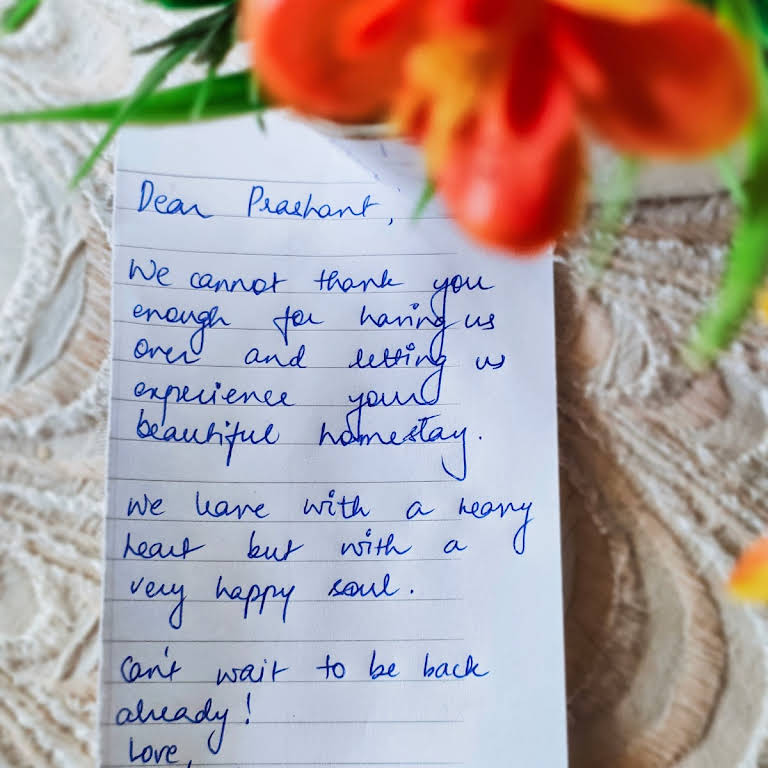 Dear Prashant,
We cannot thank you
enough for having us
over and letting us
experience your
beautiful homestay.
We leave with a heavy
heart but with a
very happy soul.
Can't wait to be back
already!
Love,